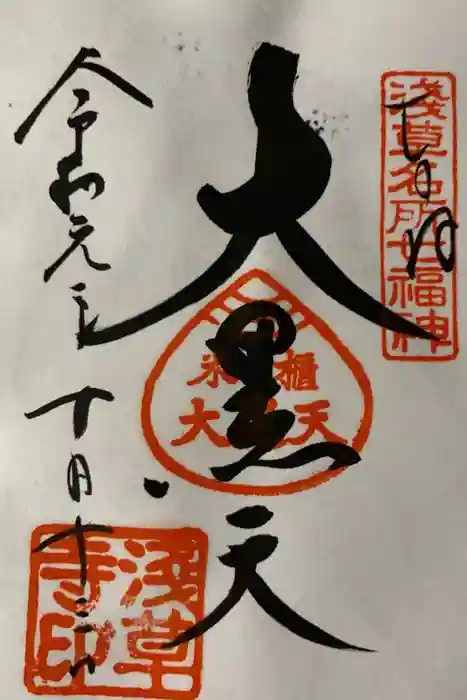 奉拝
浅草名所七福神
大黒天
米櫃
大黒天
令和元年
十月十二日
浅草
寺印